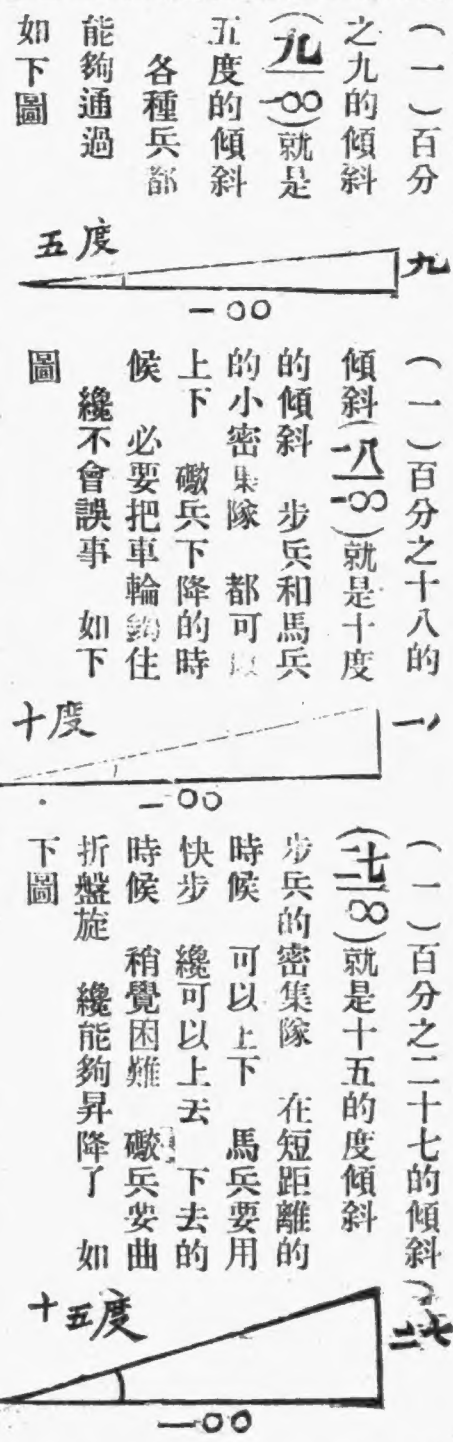 (一)百分
之九的傾斜
(九/一○○)就是
五度的傾斜
各種兵都
能夠通過
如下圖
九
五度
一○○
(一)百分之十八的
傾斜(一八/一○○)就是十度
的傾斜 步兵和馬兵
的小密集隊 都可以
上下 礮兵下降的時
候 必要把車輪鈎住
纔不會誤事 如下
圖
十度
一○○
(一)百分之二十七的傾斜
(二七/一○○)就是十五的度傾斜
步兵的密集隊 在短距離的
時候 可以上下 馬兵要用
快步 纔可以上去 下去的
時候 稍覺困難 礮兵要曲
折盤旋 纔能夠昇降了 如
下圖
二七
十五度
一○○